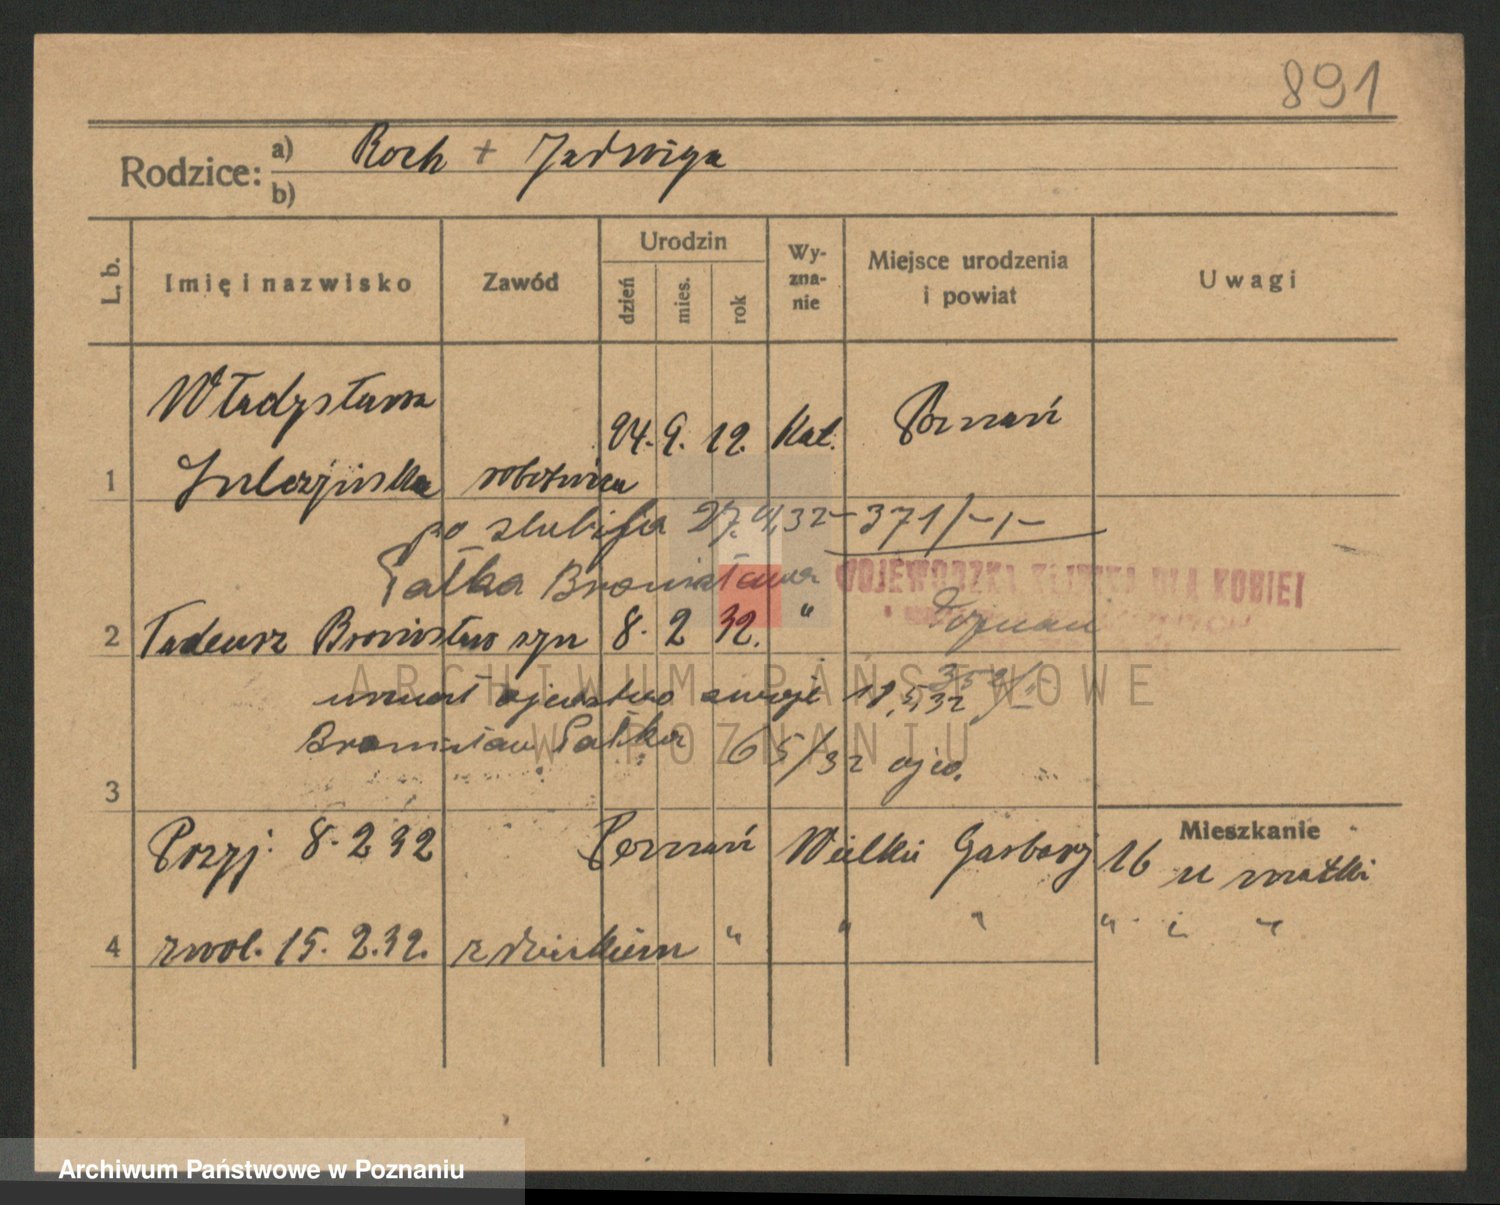 891
Rodzice: a) Roch + Jadwiga
b)
L. b. Imię i nazwisko Zawód Urodzin dzień mies. rok Wyznanie Miejsce urodzenia i powiat Uwagi
Władysława
24. 9. 12. Kat. Poznań
1 robotnica
po ślubiła 27. 32 – 371/-,-
Pałka Bronisława
WOJEWÓDZKA KLINIKA DLA KOBIET
2 Tadeusz Bronisław syn 8. 2 32. " Poznań
uznał ojcostwo swoje 18,5,32
Bronisław Pałka 65/32 ojco.
3
Mieszkanie
Przyj. 8. 2 32 Poznań Wielkie Garbary 16 u matki
4 zwol. 15. 2. 32. z dzieckiem " " " " i "
ARCHIWUM PAŃSTWOWE
W POZNANIU
Archiwum Państwowe w Poznaniu